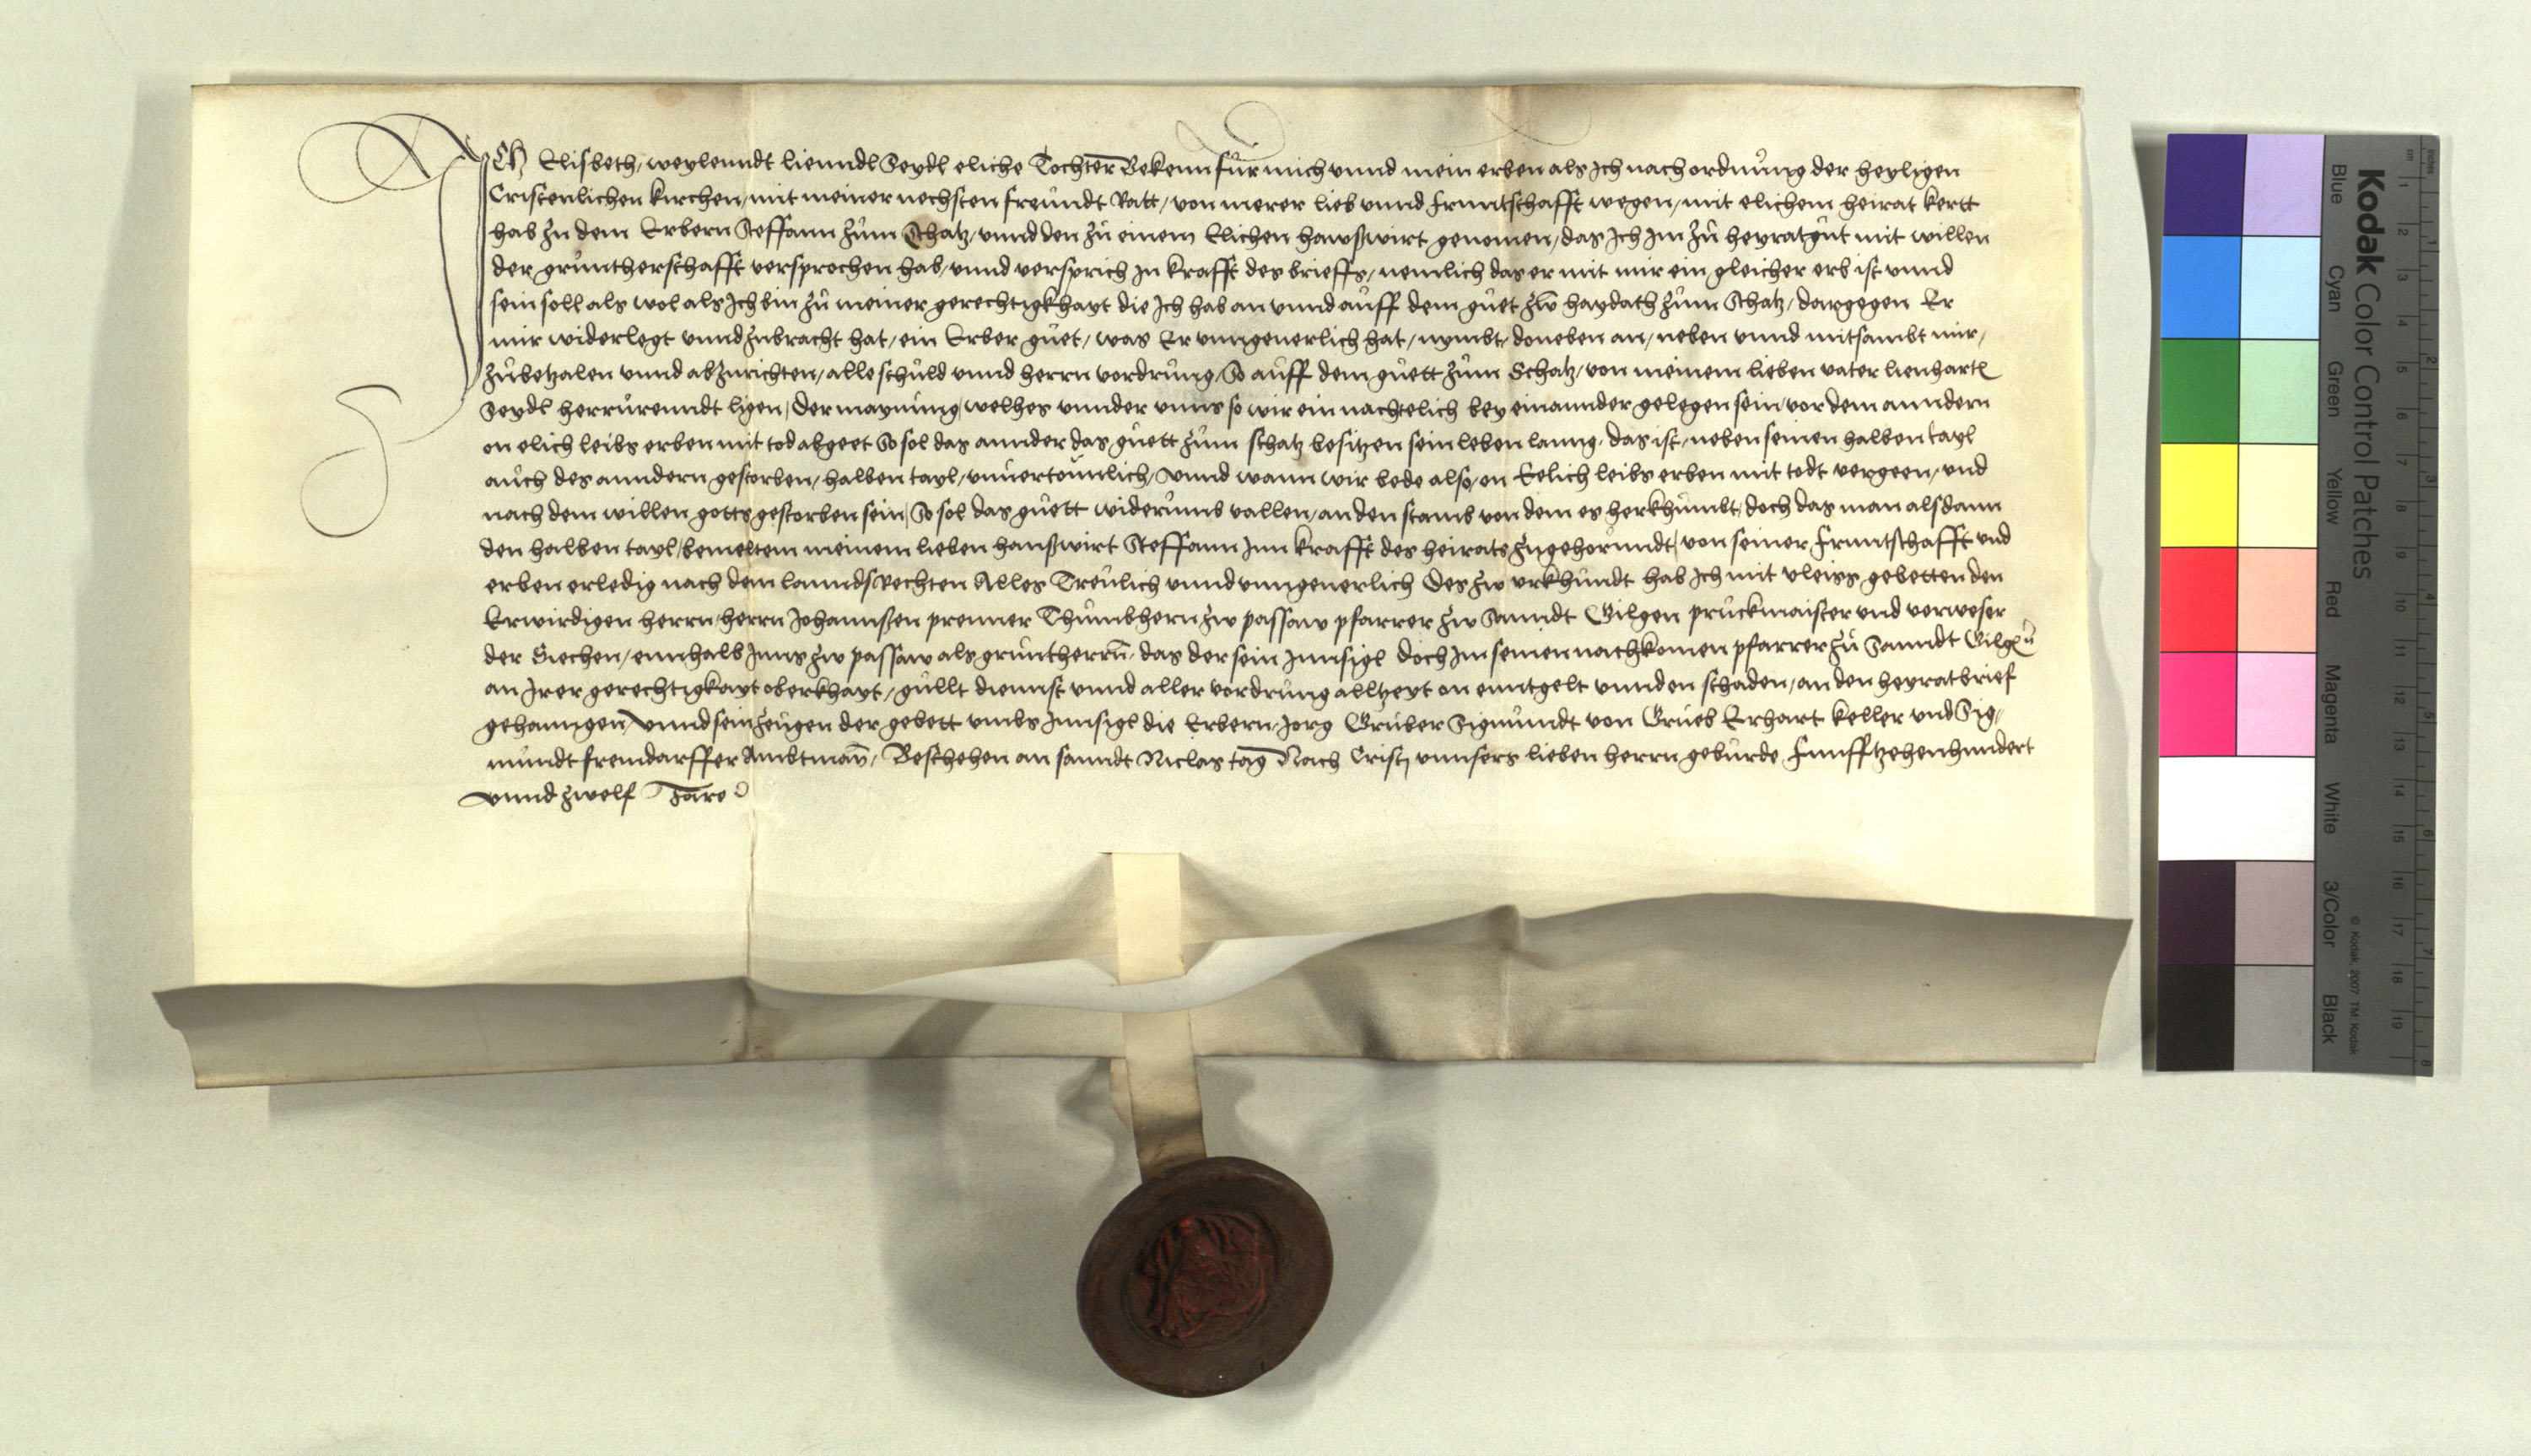 ICh Elisbeth, weylenndt lienndl Seydl eliche Tochter Bekenn für mich vnnd mein erben als Ich nach ordnung der heyligen
Cristenlichen kirchen, mit meiner nechsten freundt Ratt, von merer lieb vnnd fruntschafft wegen, mit elichem heirat kertt
hab zu dem Erbern Steffann zum Schatz, vnnd den zu einem Elichen hawßwirt genomen, das Ich Im zu heyratgut mit willen
der gruntherschafft versprochen hab, vnnd versprich In krafft des brieffs, nemlich das er mit mir ein gleicher erb ist vnnd
sein soll als wol als Ich bin zu meiner gerechtigkhayt die Ich hab an vnnd auff dem guet zw haydath zum Schatz, dargegen Er
mir widerlegt vnnd zubracht hat, ein Erber guet, was Er vnngeuerlich hat, nymbt, doneben an, neben vnnd mitsambt mir,
zubetzalen vnnd abzurichten, alle schuld vnnd herrn vordrung, So auff dem guett zum Schatz, von meinem lieben vater lienhartn
Seydl herrurenndt ligen, Der maynung, welhes vnnder vnns so wir ein nachtelich bey einannder gelegen sein, vor dem anndern
on elich leibs erben mit tod abgeet So sol das annder das guett zum schatz besitzen sein leben lanng, das ist, neben seinen halben tayl
auch des anndern gestorben, halben tayl, vnuertoumlich, Vnnd wann wir bede also, on Eelich leibs erben mit todt vergeen, vnd
nach dem willen gotts gestorben sein, So sol das guett widerumb vallen, an den stamb von dem es herkhumbt, doch das man alsdann
den halben tayl, bemeltem meinem lieben haußwirt Steffann Inn krafft des heirats zugehorundt, von seiner fruntschafft vnd
erben erledig nach dem lannds Rechten Alles Treulich vnnd vnngeuerlich Des zw vrkhundt hab Ich mit vleiss gebetten den
Erwirdigen herrn, herrn Johannßen prenner Thumbhern zw passaw pfarrer zw Sanndt Gilgen pruckmaister vnd verweser
der Siechen, ennhalb Inns zw passaw als gruntherrn, das der sein Innsigl doch Im seinen nachkomen pfarrer zu Sanndt Gilgn
an Irer gerechtigkayt oberkhayt, gullt diennst vnnd aller vordrung alltzeyt on enntgelt vnnd on schaden, an den heyratbrief
gehanngen, Vnnd sein zeugen der gebett vmbs Innsigl die Erbern, Jorg Gruber Sigmundt von Grueb Erhart keller vnd Sig,
mundt fremdarffer Ambtman, Beschehen an sanndt Niclas tag Nach Cristj vnnsers lieben herrn geburde Funfftzehenhundert
vnnd zwelf Jare

Kodak Color Control Patches
© Kodak, 2007 TM: Kodak
Blue Cyan Green Yellow Red Magenta White 3/Color Black
inches 1 2 3 4 5 6 7 8
cm 1 2 3 4 5 6 7 8 9 10 11 12 13 14 15 16 17 18 19